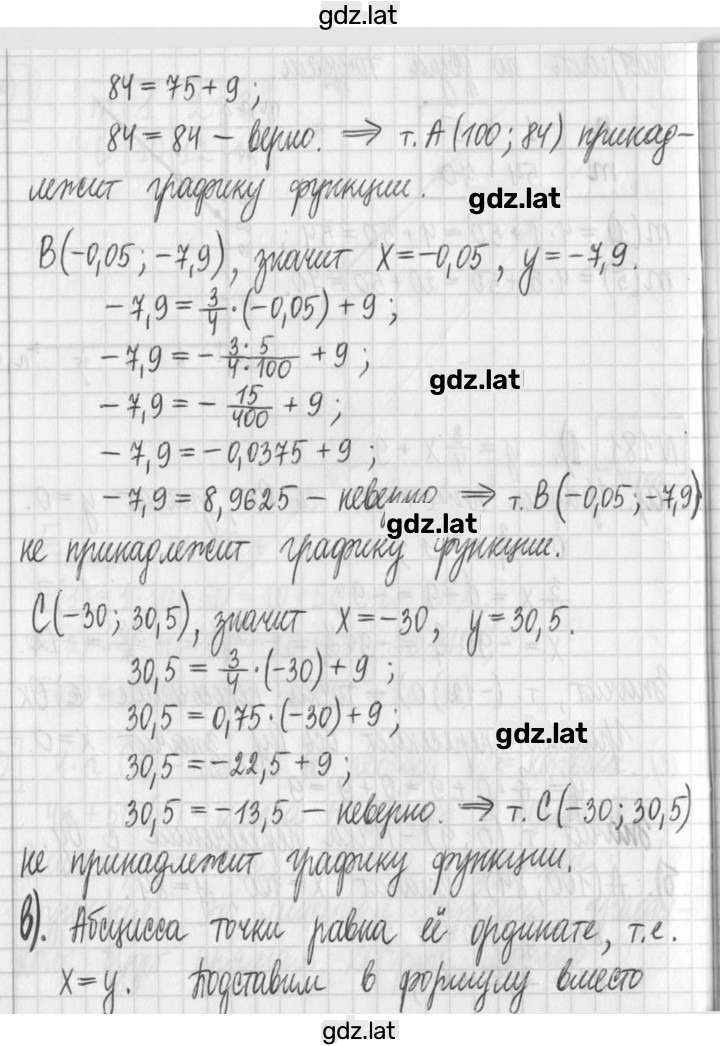 gdz.lat
84 = 75 + 9 ;
84 = 84 – верно. ⟹ т. A (100 ; 84) принад-
лежит графику функции.
gdz.lat
B(-0,05 ; -7,9), значит x = -0,05 , y = -7,9.
-7,9 = 3/4 · (-0,05) + 9 ;
-7,9 = - 3 · 5 / 4 · 100 + 9 ;
gdz.lat
-7,9 = - 15/400 + 9 ;
-7,9 = -0,0375 + 9 ;
-7,9 = 8,9625 – неверно ⟹ т. B (-0,05 ; -7,9)
gdz.lat
не принадлежит графику функции.
C(-30 ; 30,5), значит x = -30, y = 30,5.
30,5 = 3/4 · (-30) + 9 ;
30,5 = 0,75 · (-30) + 9 ;
gdz.lat
30,5 = -22,5 + 9 ;
30,5 = -13,5 – неверно. ⟹ т. C (-30 ; 30,5)
не принадлежит графику функции.
в). Абсцисса точки равна её ординате, т.е.
x = y. Подставим в формулу вместо
gdz.lat